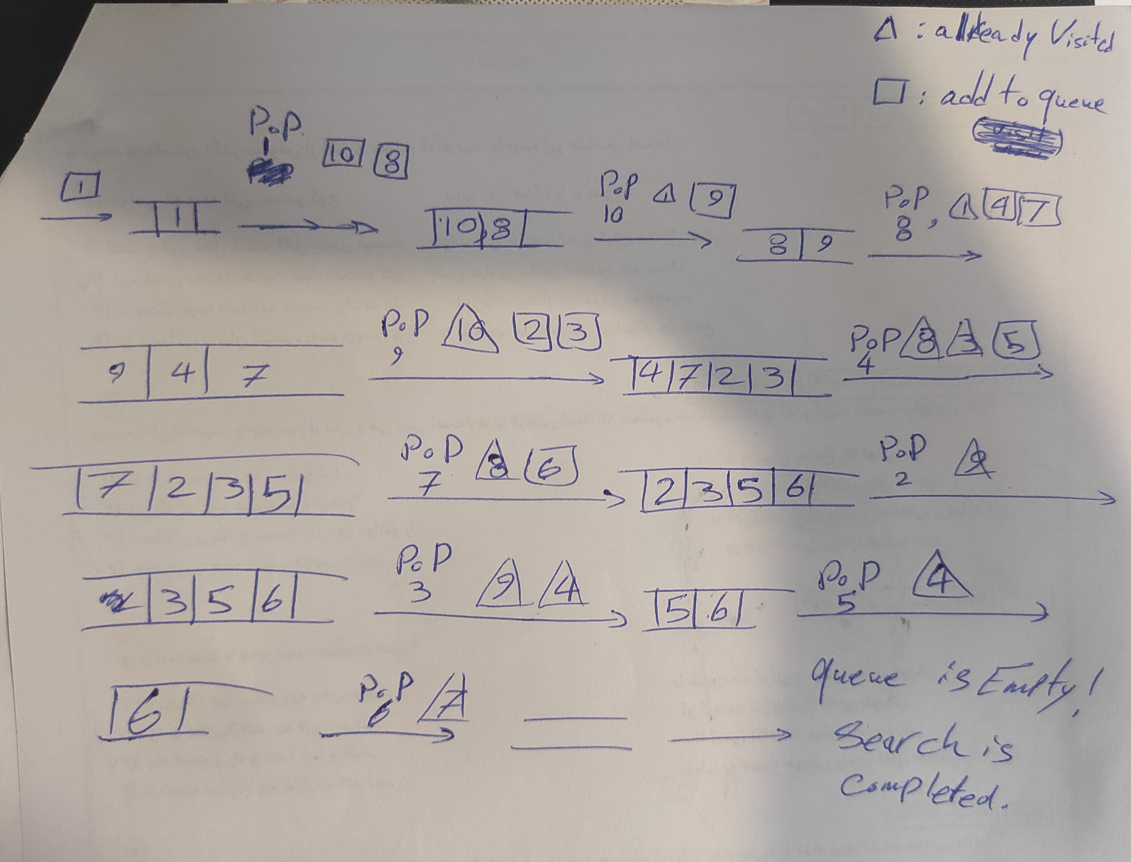 △ : already Visited
□ : add to queue
1
1
PoP
1
10 8
10 8
PoP
10
1 9
8 9
PoP
8, 1 4 7
9 4 7
PoP
9
10 2 3
4 7 2 3
PoP
4
8 3 5
7 2 3 5
PoP
7
8 6
2 3 5 6
PoP
2
9
3 5 6
PoP
3
9 4
5 6
PoP
5
4
6
PoP
6
7
queue is Empty!
Search is
completed.